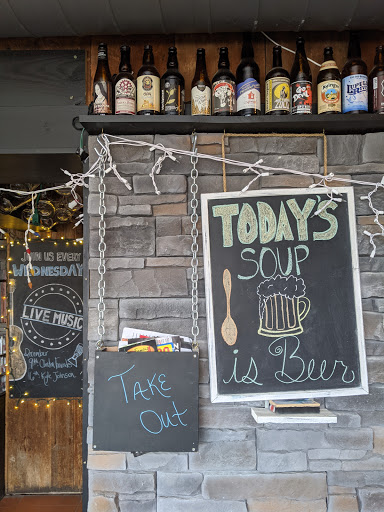 JOIN US EVERY
WEDNESDAY
LIVE MUSIC
December
9th
16th Kyle Johnson
TODAY'S
SOUP
is Beer
TAKE
OUT